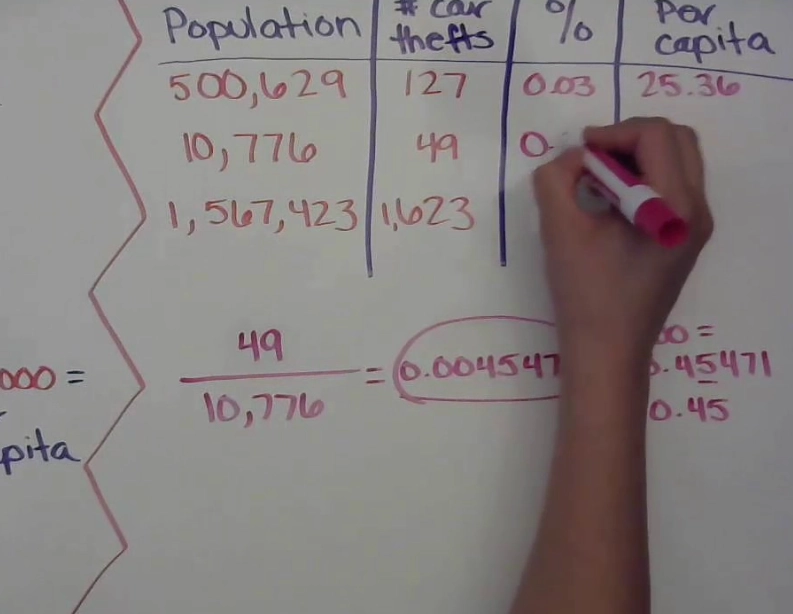 Population # car thefts % Per capita
500,629 127 0.03 25.36
10,776 49 0.
1,567,423 1,623
000 =
pita
49
10,776
= 0.004547
00 =
0.45471
0.45